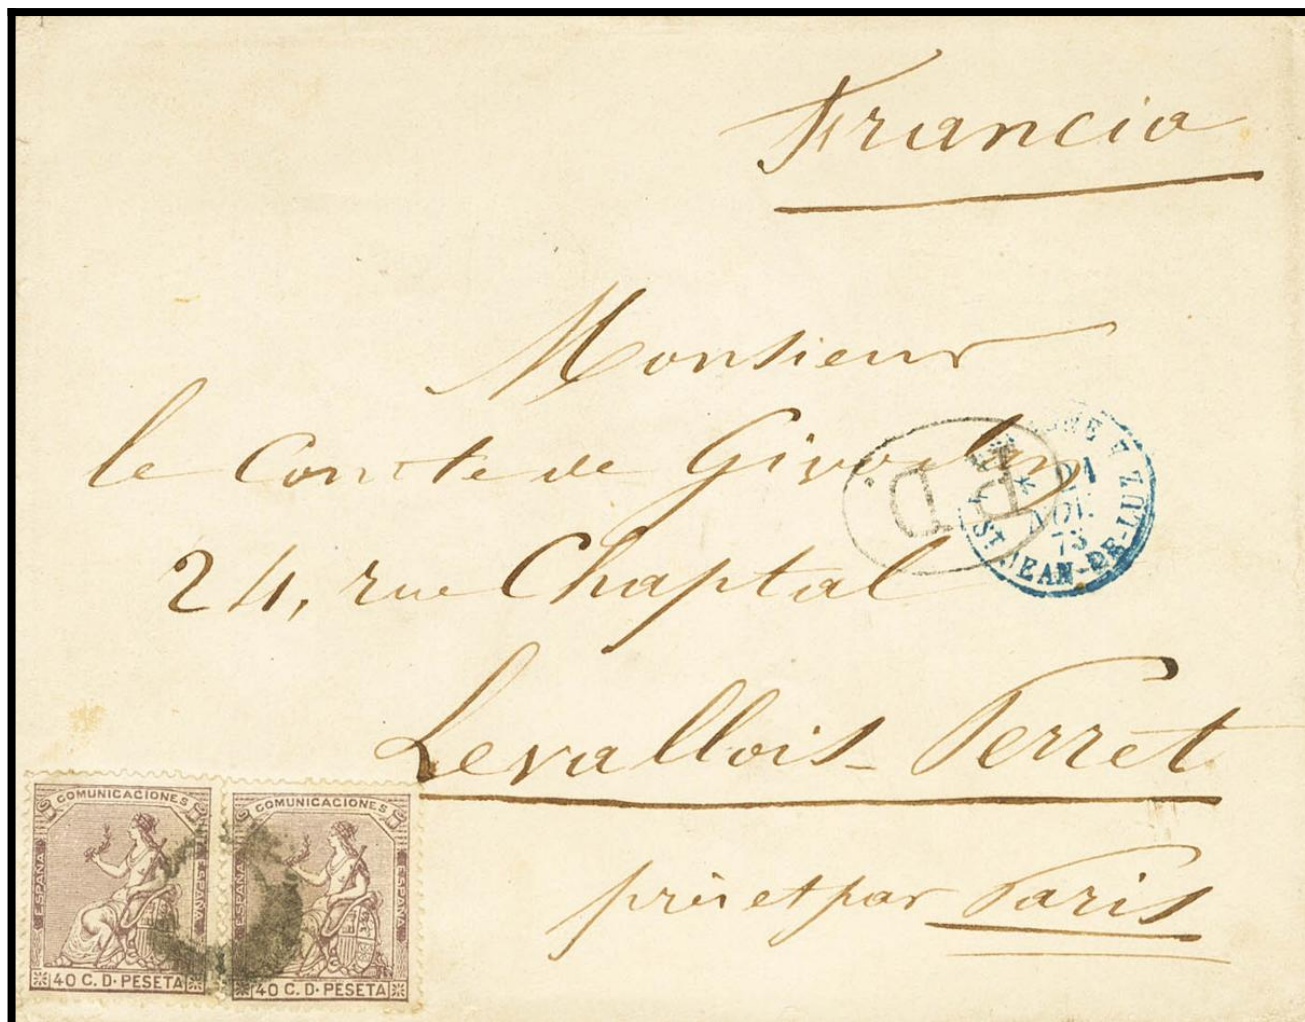 Francia
Monsieur
le Comte de
24, rue Chaptal
Levallois-Perret
près et par Paris
P.D.
ST JEAN-DE-LUZ
21
NOV.
73
COMUNICACIONES
ESPAÑA
ESPAÑA
40 C. D. PESETA
COMUNICACIONES
ESPAÑA
ESPAÑA
40 C. D. PESETA